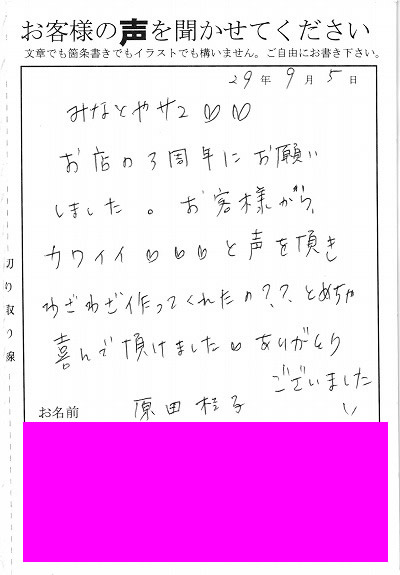 お客様の声を聞かせてください
文章でも箇条書きでもイラストでも構いません。ご自由にお書き下さい。
29年9月5日
みなとやサン♡♡
お店の3周年にお願い
しました。お客様から、
カワイイ♡♡♡と声を頂き
わざわざ作ってくれたの??とめちゃ
喜んで頂けました♡ありがとう
ございました
お名前 原田桂子
切り取り線